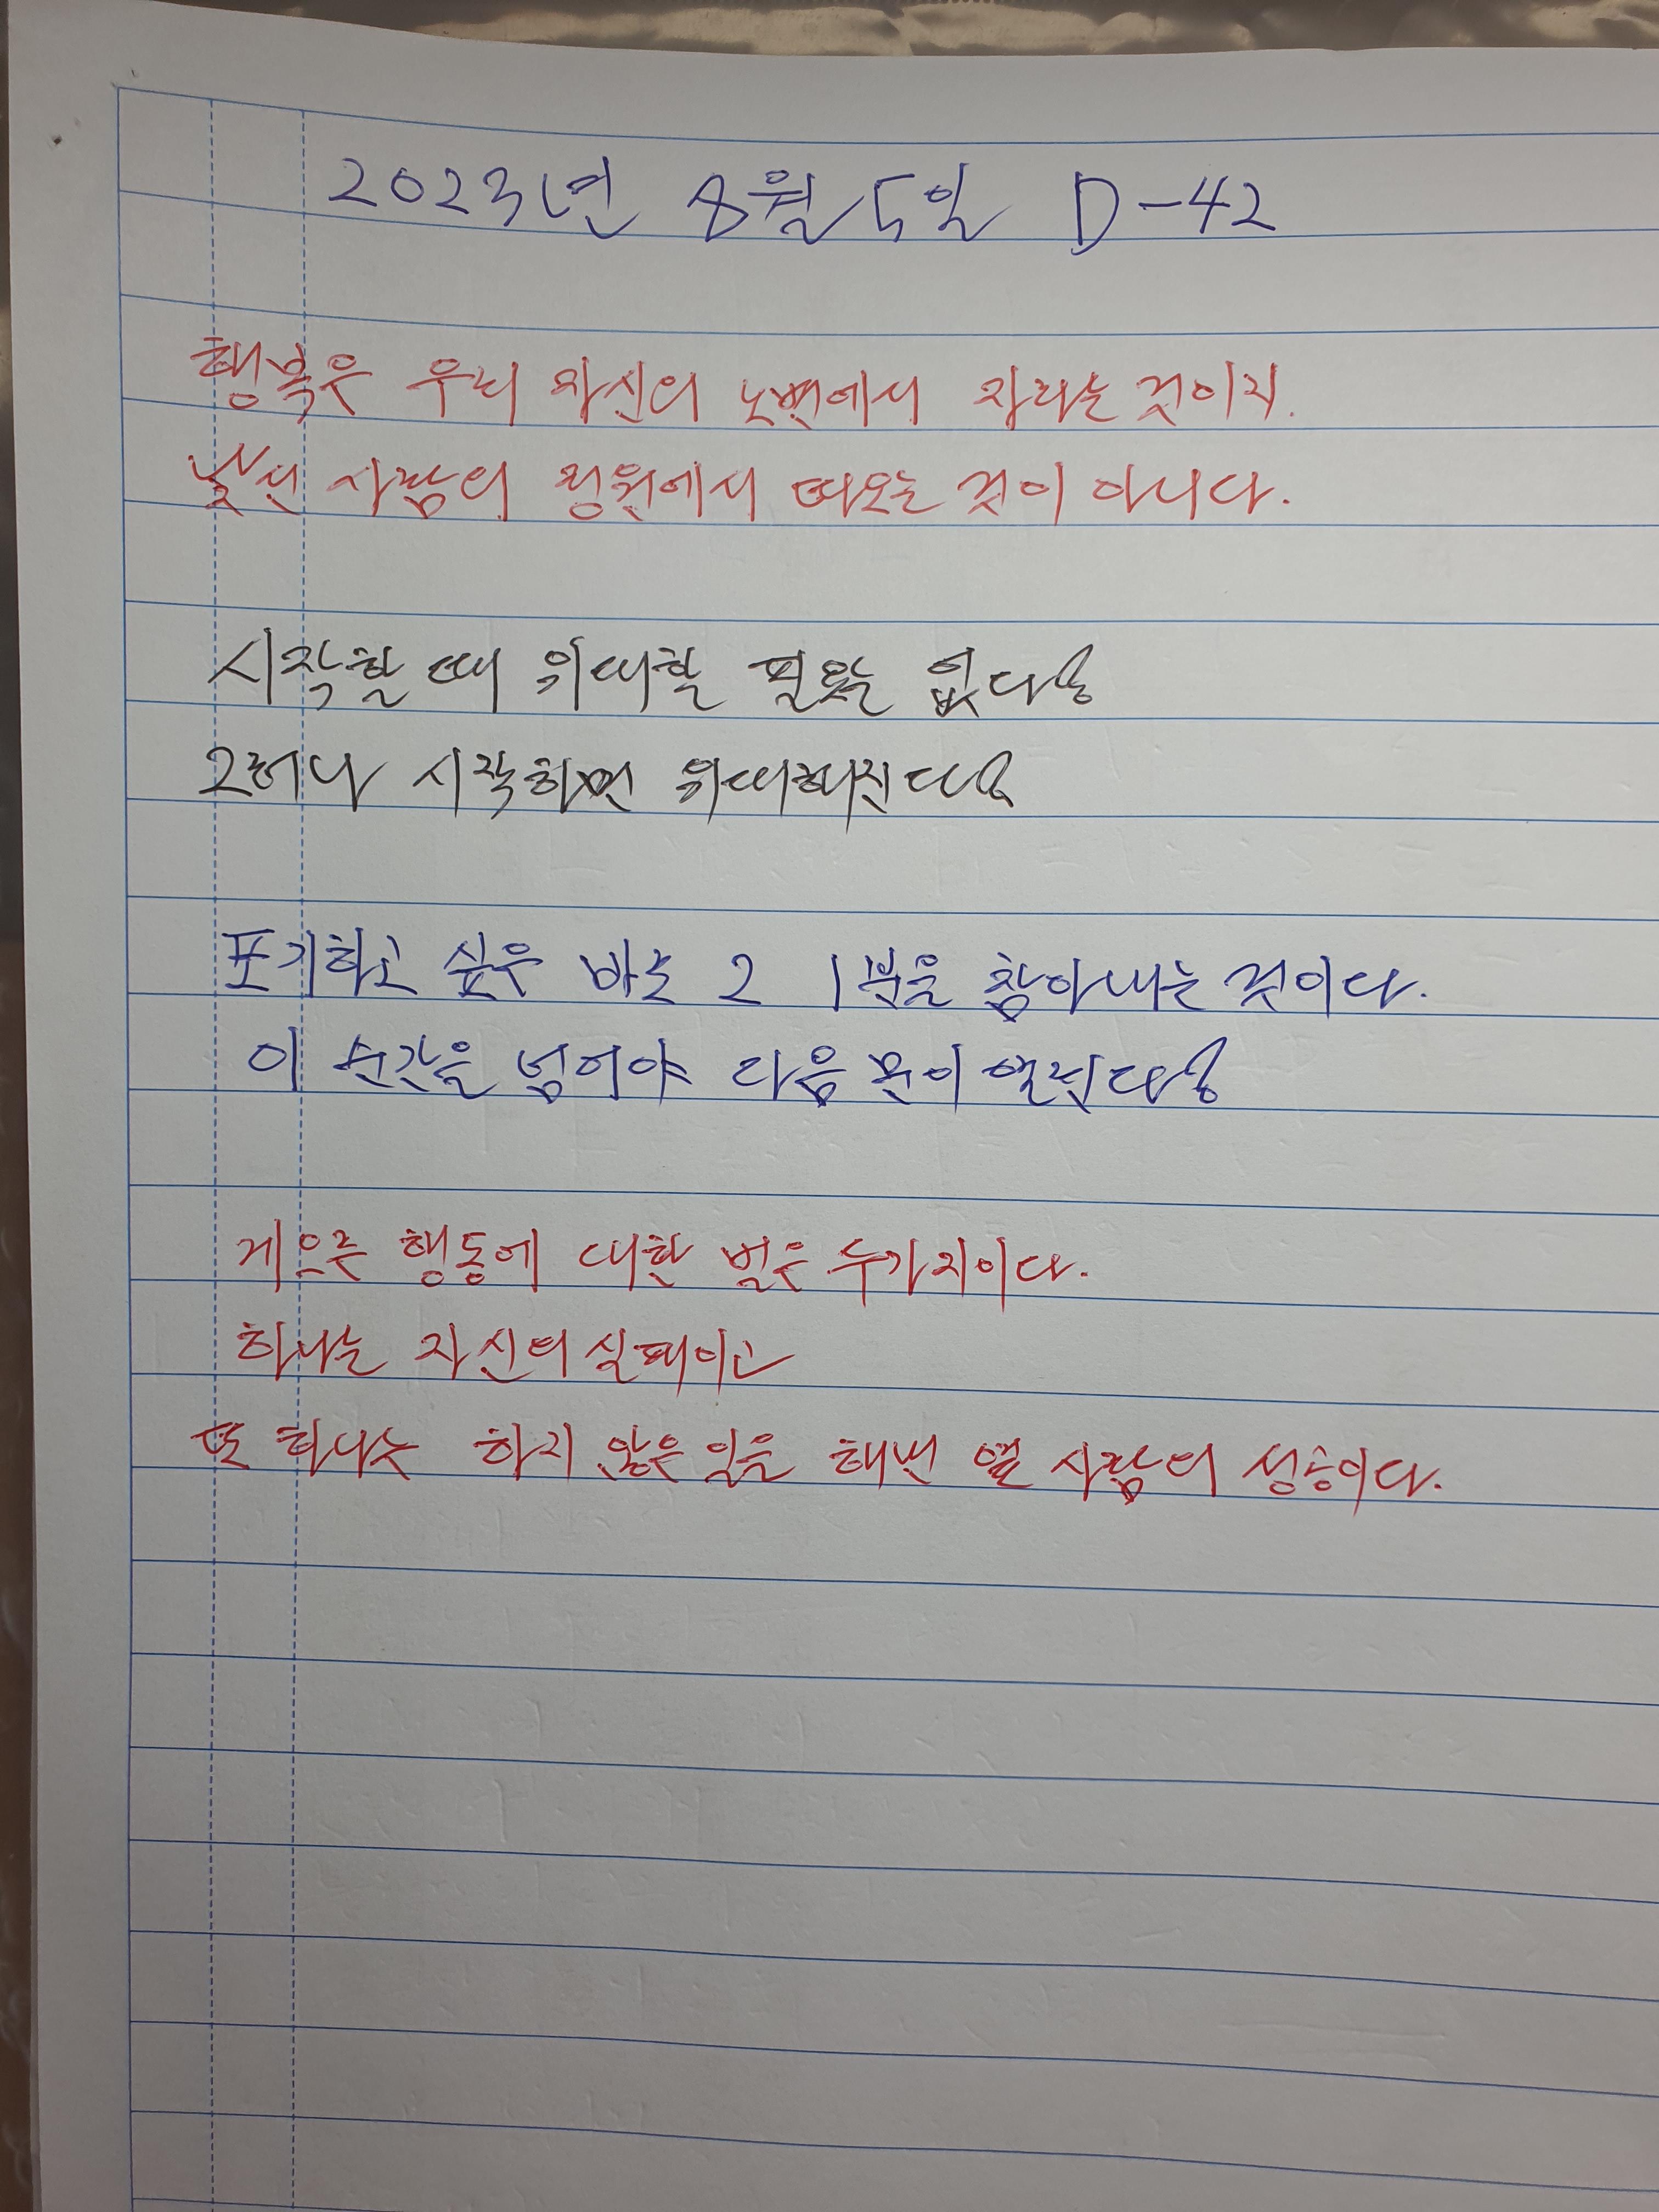 2023년 8월 5일 D-42
행복은 우리 자신의 노변에서 자라는 것이지.
낯선 사람의 정원에서 따오는 것이 아니다.
시작할 때 위대할 필요는 없다!
그러나 시작하면 위대해진다!
포기하고 싶은 바로 그 1분을 참아내는 것이다.
이 순간을 넘어야 다음 문이 열린다!
게으른 행동에 대한 벌은 두가지이다.
하나는 자신의 실패이고
또 하나는 하지 않은 일을 해번 옆 사람의 성공이다.